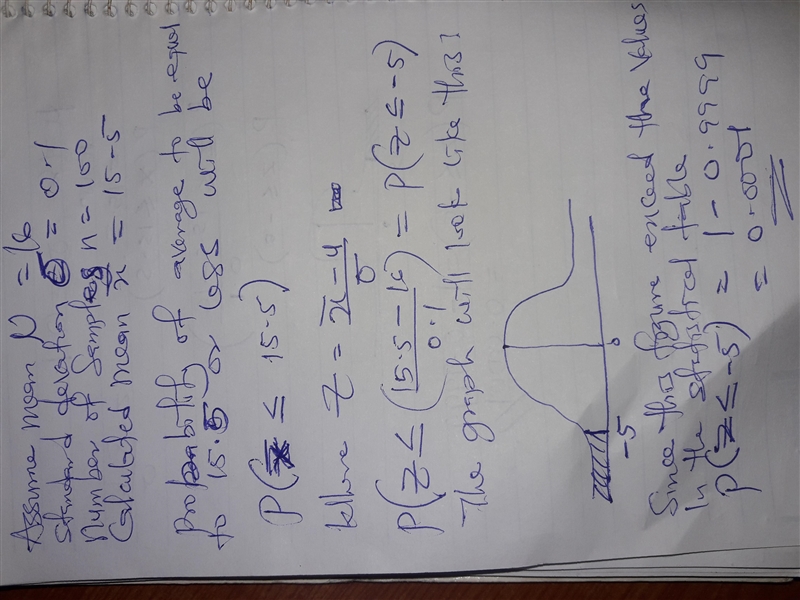 Assume mean μ = 16
Standard deviation σ = 0.1
Number of samples n = 100
Calculated mean x̄ = 15.5
probability of average to be equal
to 15.5 or less will be
P(x̄ ≤ 15.5)
Where Z = x̄ - μ / σ
P(Z ≤ (15.5 - 16 / 0.1) = P(Z ≤ -5)
The graph will look like this:
-5 0
Since this figure exceed the values
In the statistical table
P(Z ≤ -5) = 1 - 0.9999
= 0.0001